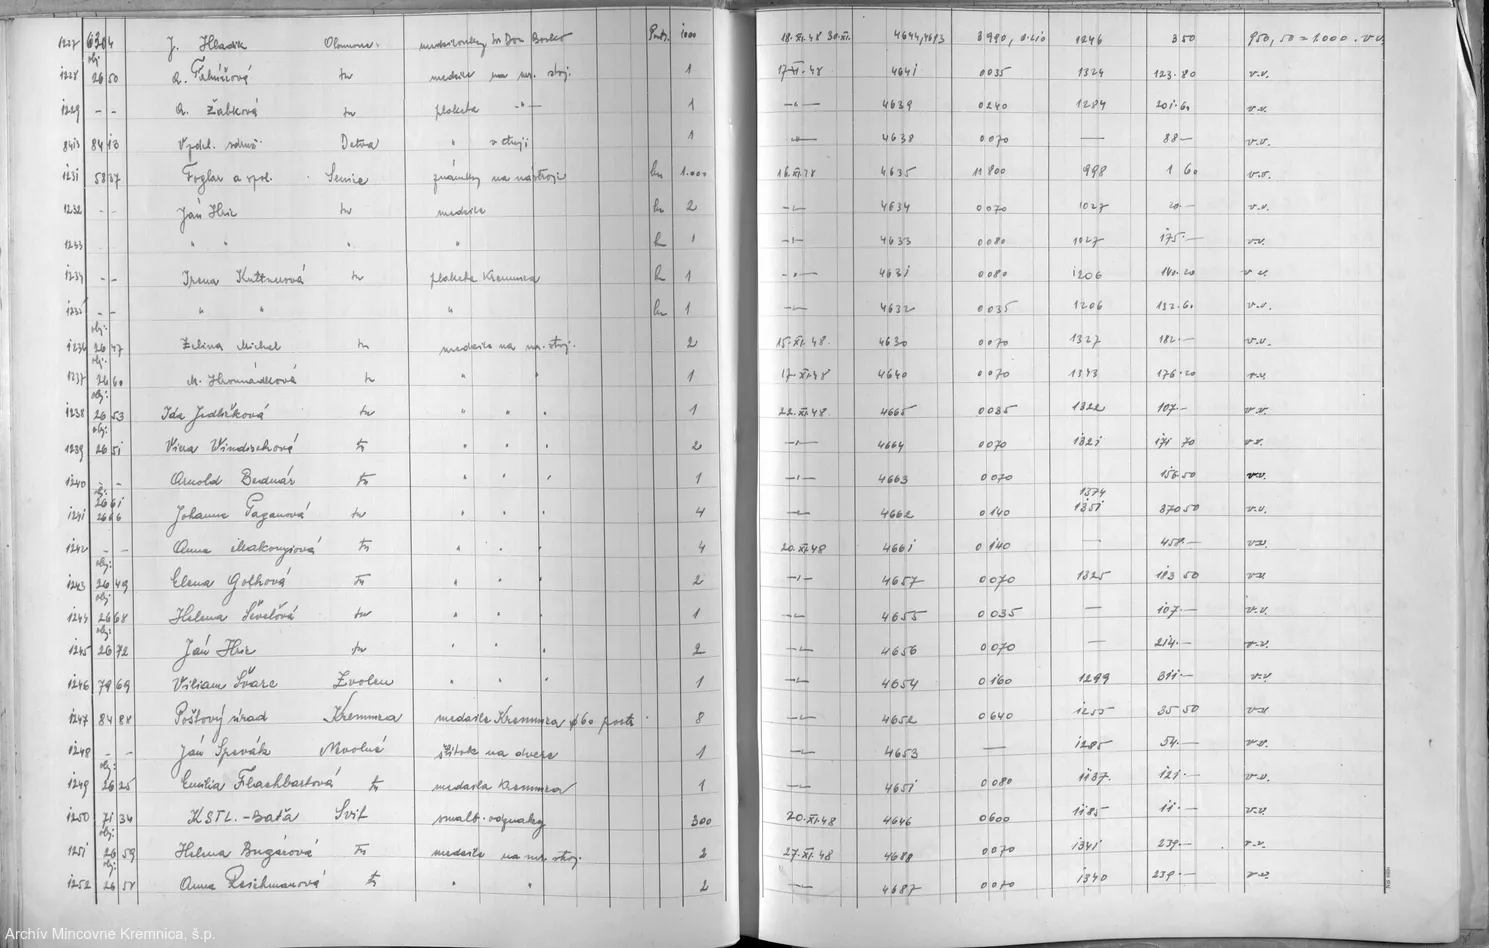 1227 6204 J. Hladík Olomouc medailonky Sv Don Bosko 1000 18.XI.48 30.XI. 4644,4693 3990, 0.210 1246 350 950, 50 = 1000 . v.v.
obj.
1228 26 50 tu medaila na nár. stroj. 1 17.XI.48 4641 0035 1324 123.80 v.v.
1229 - - A. Žabková tu plaketa -"- 1 -"- 4639 0240 1284 201.60 v.v.
84 13 Detva " 1 -"- 4638 0070 — 88 — v.v.
1231 58 37 Foglar a spol. Senica známky na nástroje 1.000 16.XI.48 4635 11800 998 1 60 v.v.
1232 - - Ján Hric tu medaila 2 -"- 4634 0070 1027 v.v.
1233 " " " " 1 -"- 4633 0080 1027 175.— v.v.
1234 - - Irena Kuttnerová tu plaketa Kremnica 1 -"- 4631 0080 1206 140.20 v.v.
1235 - - " " " 1 -"- 4632 0035 1206 132.60 v.v.
obj.
1236 26 47 Želina Michal tu medaila na nár. stroj. 2 15.XI.48. 4630 0070 1327 182.— v.v.
obj.
1237 26 60 M. Hromádková tu " " 1 17.XI.48 4640 0070 1343 176.20 v.v.
obj.
1238 26 53 Ida Jedličková tu " " " 1 22.XI.48. 4665 0035 1322 107.— v.v.
obj.
1239 26 51 Viera Windischová tu " " " 2 -"- 4664 0070 1321 171 70 v.v.
1240 - - Arnold Bednár tu " " " 1 -"- 4663 0070 156.50 v.v.
obj. 26 61 1374
1241 26 66 Johanna Paganová tu " " " 4 -"- 4662 0140 1351 370 50 v.v.
1242 - - Anna Makonyiová tu " " " 4 20.XI.48 4661 0140 — 458.— v.v.
obj.
1243 26 49 Elena Golhová tu " " " 2 -"- 4657 0070 1325 183 50 v.v.
obj.
1244 26 68 Helena Ševelová tu " " " 1 -"- 4655 0035 — 107.— v.v.
obj.
1245 26 72 Ján Hric tu " " " 2 -"- 4656 0070 — 214.— v.v.
1246 79 69 Viliam Švarc Zvolen " " " 1 -"- 4654 0160 1299 311.— v.v.
1247 84 88 Poštový úrad Kremnica medaila Kremnica ø 60 8 -"- 4652 0640 1255 35 50 v.v.
1248 - - Ján Spevák Nevolné štítok na dvere 1 -"- 4653 — 1285 54.— v.v.
obj.
1249 26 25 Emília Flachbartová tu medaila Kremnica 1 -"- 4651 0080 1137. 121.— v.v.
1250 71 34 KSTL. - Baťa Svit smalt. odznaky 300 20.XI.48 4646 0600 1185 11.— v.v.
obj.
1251 26 59 Helena Bugárová tu medaila na nár. stroj. 2 27.XI.48 4688 0070 1341 239.— v.v.
obj.
1252 26 58 Anna Reichmanová tu " " 2 -"- 4687 0070 1340 239.— v.v.
Archív Mincovne Kremnica, š.p.